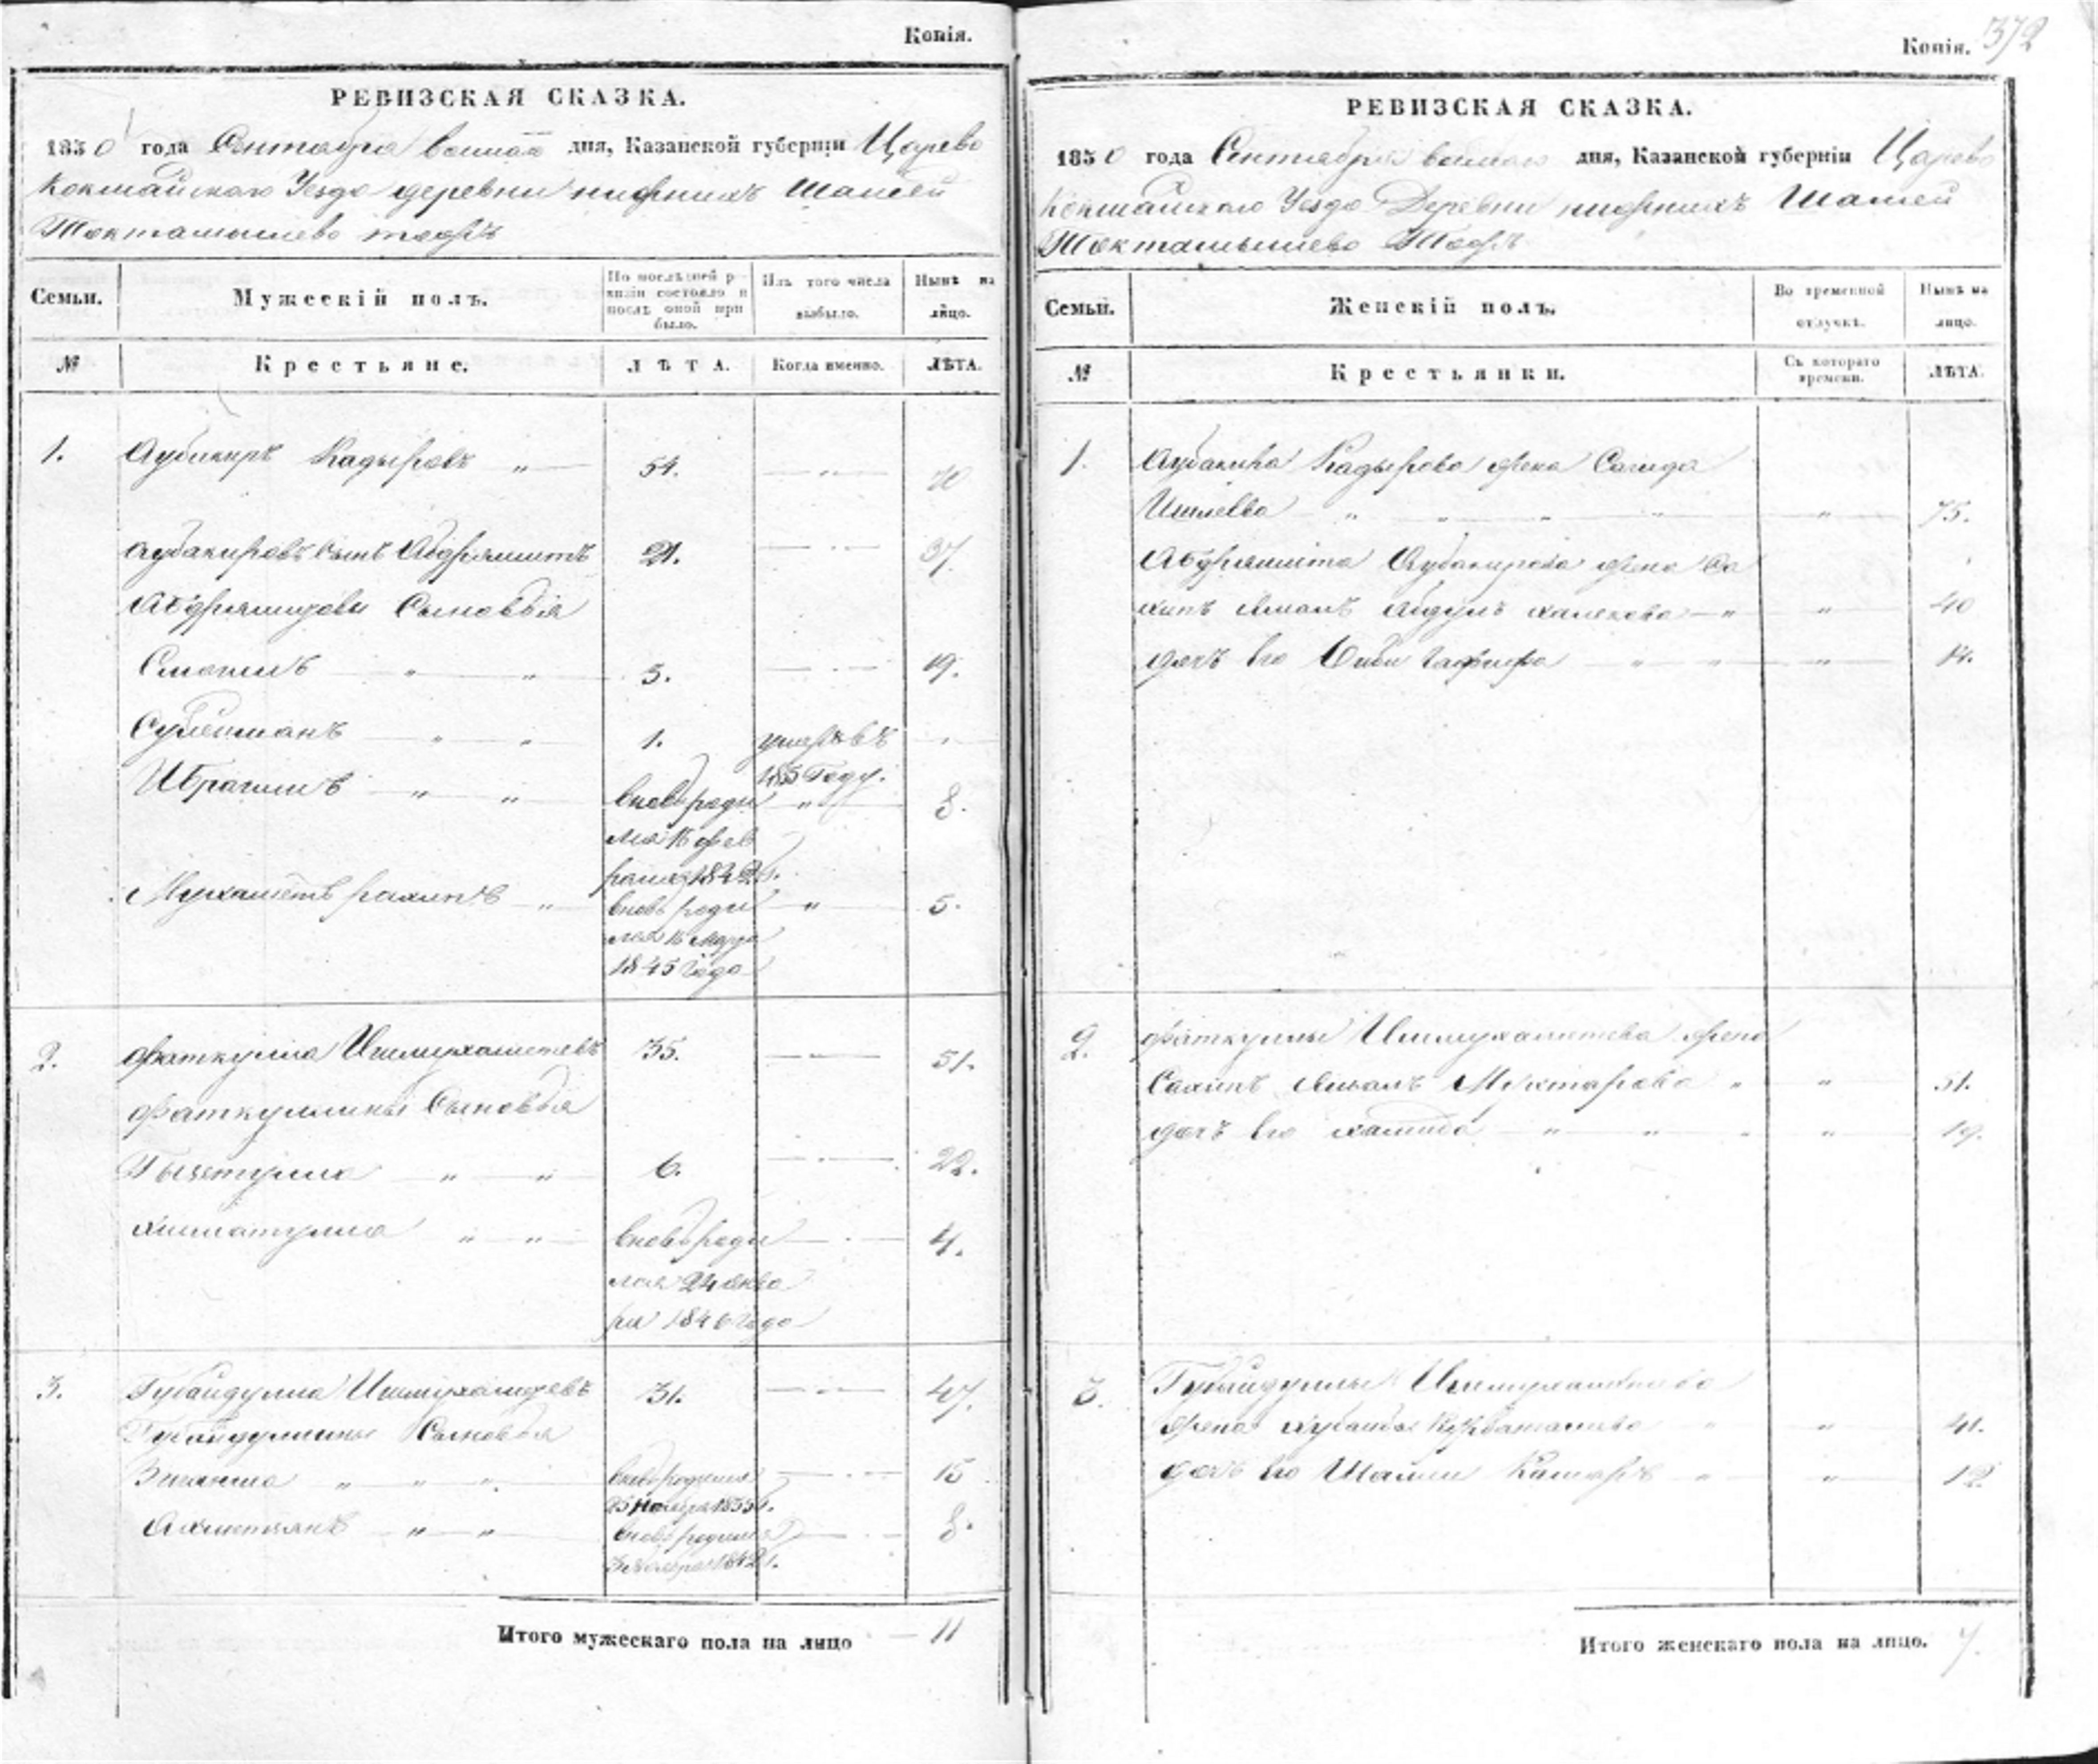 Копія.
РЕВИЗСКАЯ СКАЗКА.
1850 года Сентября дня, Казанской губерніи Царево
Кокшайскаго Уезда деревни нижнихъ Шашей
Токтамышево тожъ
Семьи. Мужескій полъ. По послѣдней ревизіи состояло и послѣ оной прибыло. Изъ того числа выбыло. Нынѣ на лицо.
№ Крестьяне. ЛѢТА. Когда именно. ЛѢТА.
1. Аубикиръ Кадыровъ " 54. " 70
Аубакировъ сынъ Абдряшитъ 21. 37.
Абдряшитовы Сыновья
Смагилъ " " 3. 19.
Сулейманъ " " 1. умеръ въ
183 Году.
Ибрагимъ " " вновь роди " 8.
лся 16 фев
раля 1842 г.
Мухаметъ рахимъ " вновь роди " 5.
лся 16 мар
1845 Года
2. Фаткулла Ишмухаметевъ 35. 51.
Фаткуллины Сыновья
" " 6. 22.
Хисматулла " " вновь роди 4.
лся 24 Янва
ря 1846 Года
3. Губайдулла Ишмухаметевъ 31. 47.
Губайдуллины Сыновья
" " " вновь родился 15
25 Ноября 1835 г.
Ахметзянъ " " вновь родился 8.
1842 г.
Итого мужескаго пола на лицо 11
Копія. 372
РЕВИЗСКАЯ СКАЗКА.
1850 года Сентября дня, Казанской губерніи Царево
Кокшайскаго Уезда Деревни нижнихъ Шашей
Токтамышево Тожъ
Семьи. Женскій полъ. Во временной отлучкѣ. Нынѣ на лицо.
№ Крестьянки. Съ котораго времени. ЛѢТА.
1. Аубакира Кадырова жена Сагида
Ишлева " " " " " 75.
Абдряшита Аубакирова жена Са
хипъ Ямалъ Абдулъ халекова " " 40
дочь его Биби Гафифа " " " 14.
2. Фаткуллы Ишмухаметева жена
Сахипъ Ямалъ Мухтарова " " 51.
дочь его халида " " " " 19.
3. Губайдуллы Ишмухаметева
жена " " 41.
дочь его Шамси Камаръ " " 12.
Итого женскаго пола на лицо. 7.